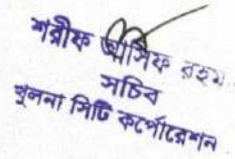 শরীফ আসিফ রহমান
সচিব
খুলনা সিটি কর্পোরেশন